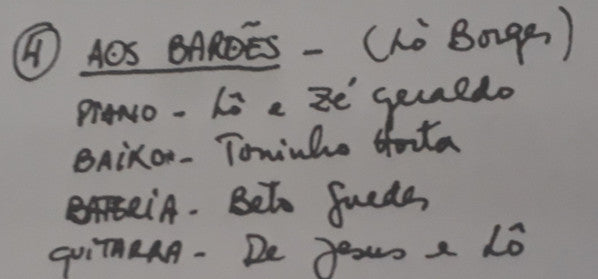 4 AOS BARÕES - (Lô Borges)
PIANO - Lô e Zé geraldo
BAIXO - Toninho Horta
BATERIA - Beto Guedes
GUITARRA - De Jesus e Lô